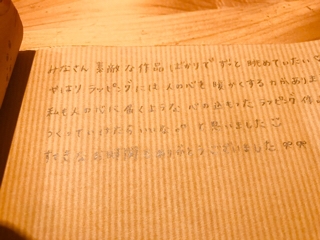 みなさん 素敵な作品ばかりで ずっと眺めていたい
やはり ラッピングには 人の心を 暖かくする 力がありま
私も人の心に 届くような 心の込もった ラッピング 作
つくっていけたら いいな と 思いました
素 な お時間 ありがとうございました